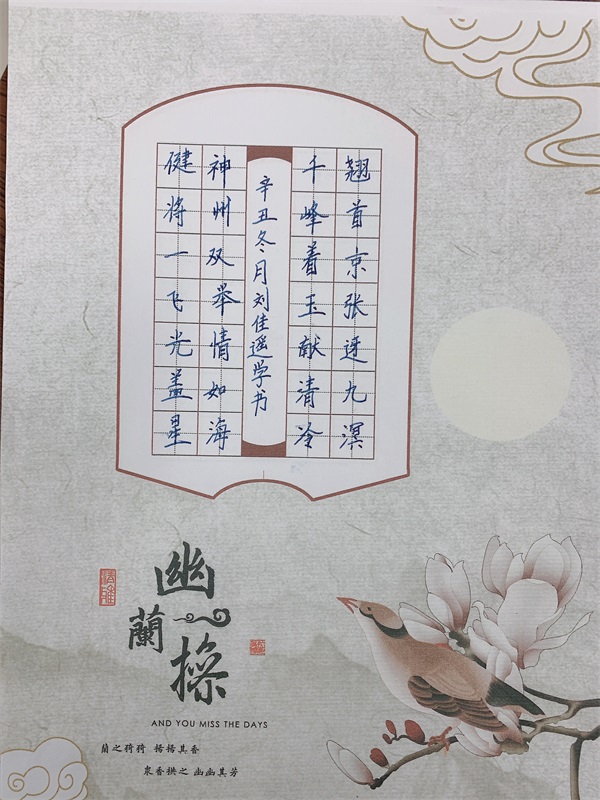 翘首京张迓九溟
千峰着玉献清冷
辛丑冬月刘佳遥学书
神州双举情如海
健将一飞光盖星
幽蘭操
AND YOU MISS THE DAYS
蘭之猗猗 揚揚其香
衆香拱之 幽幽其芳